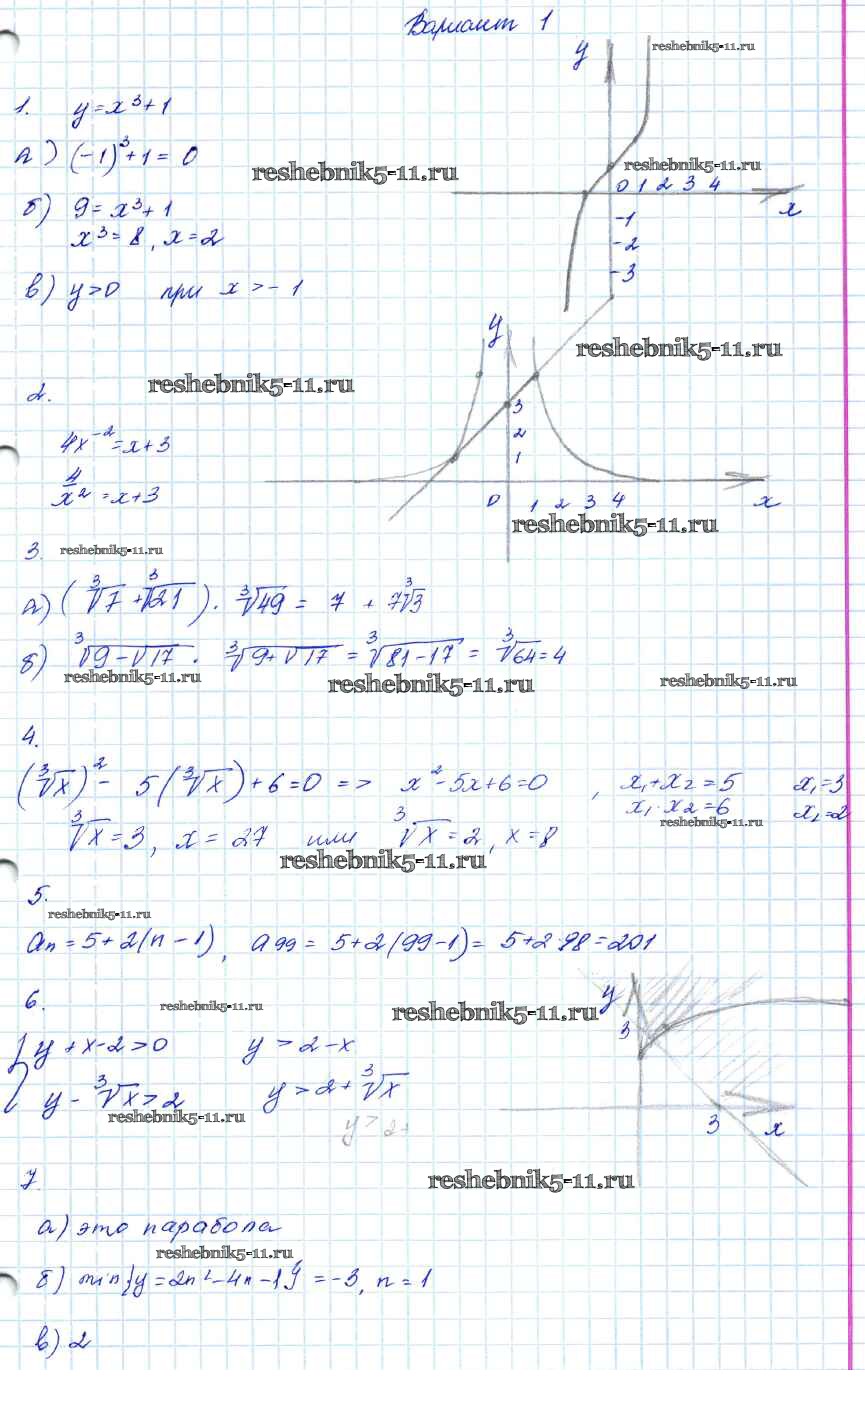 Вариант 1
y
reshebnik5-11.ru
1. y=x³+1
а) (-1)³+1=0
reshebnik5-11.ru
reshebnik5-11.ru
0 1 2 3 4
x
-1
-2
-3
б) 9=x³+1
x³=8, x=2
в) y>0 при x>-1
y
reshebnik5-11.ru
2.
reshebnik5-11.ru
3
2
1
4x⁻²=x+3
4/x²=x+3
0 1 2 3 4
x
reshebnik5-11.ru
3. reshebnik5-11.ru
а) (∛7+∛21)·∛49=7+7∛3
б) ∛(9-√17)·∛(9+√17)=∛(81-17)=∛64=4
reshebnik5-11.ru
reshebnik5-11.ru
reshebnik5-11.ru
4.
(∛x)²-5(∛x)+6=0 => x²-5x+6=0, x₁+x₂=5 x₁=3
x₁·x₂=6 x₂=2
reshebnik5-11.ru
∛x=3, x=27 или ∛x=2, x=8
reshebnik5-11.ru
5.
reshebnik5-11.ru
aₙ=5+2(n-1), a₉₉=5+2(99-1)=5+2·98=201
6.
reshebnik5-11.ru
reshebnik5-11.ru
y
3
{ y+x-2>0 y>2-x
y-∛x>2 y>2+∛x
reshebnik5-11.ru
y>2+
3 x
7.
reshebnik5-11.ru
а) это парабола
reshebnik5-11.ru
б) min{y=2n²-4n-1}=-3, n=1
в) 2